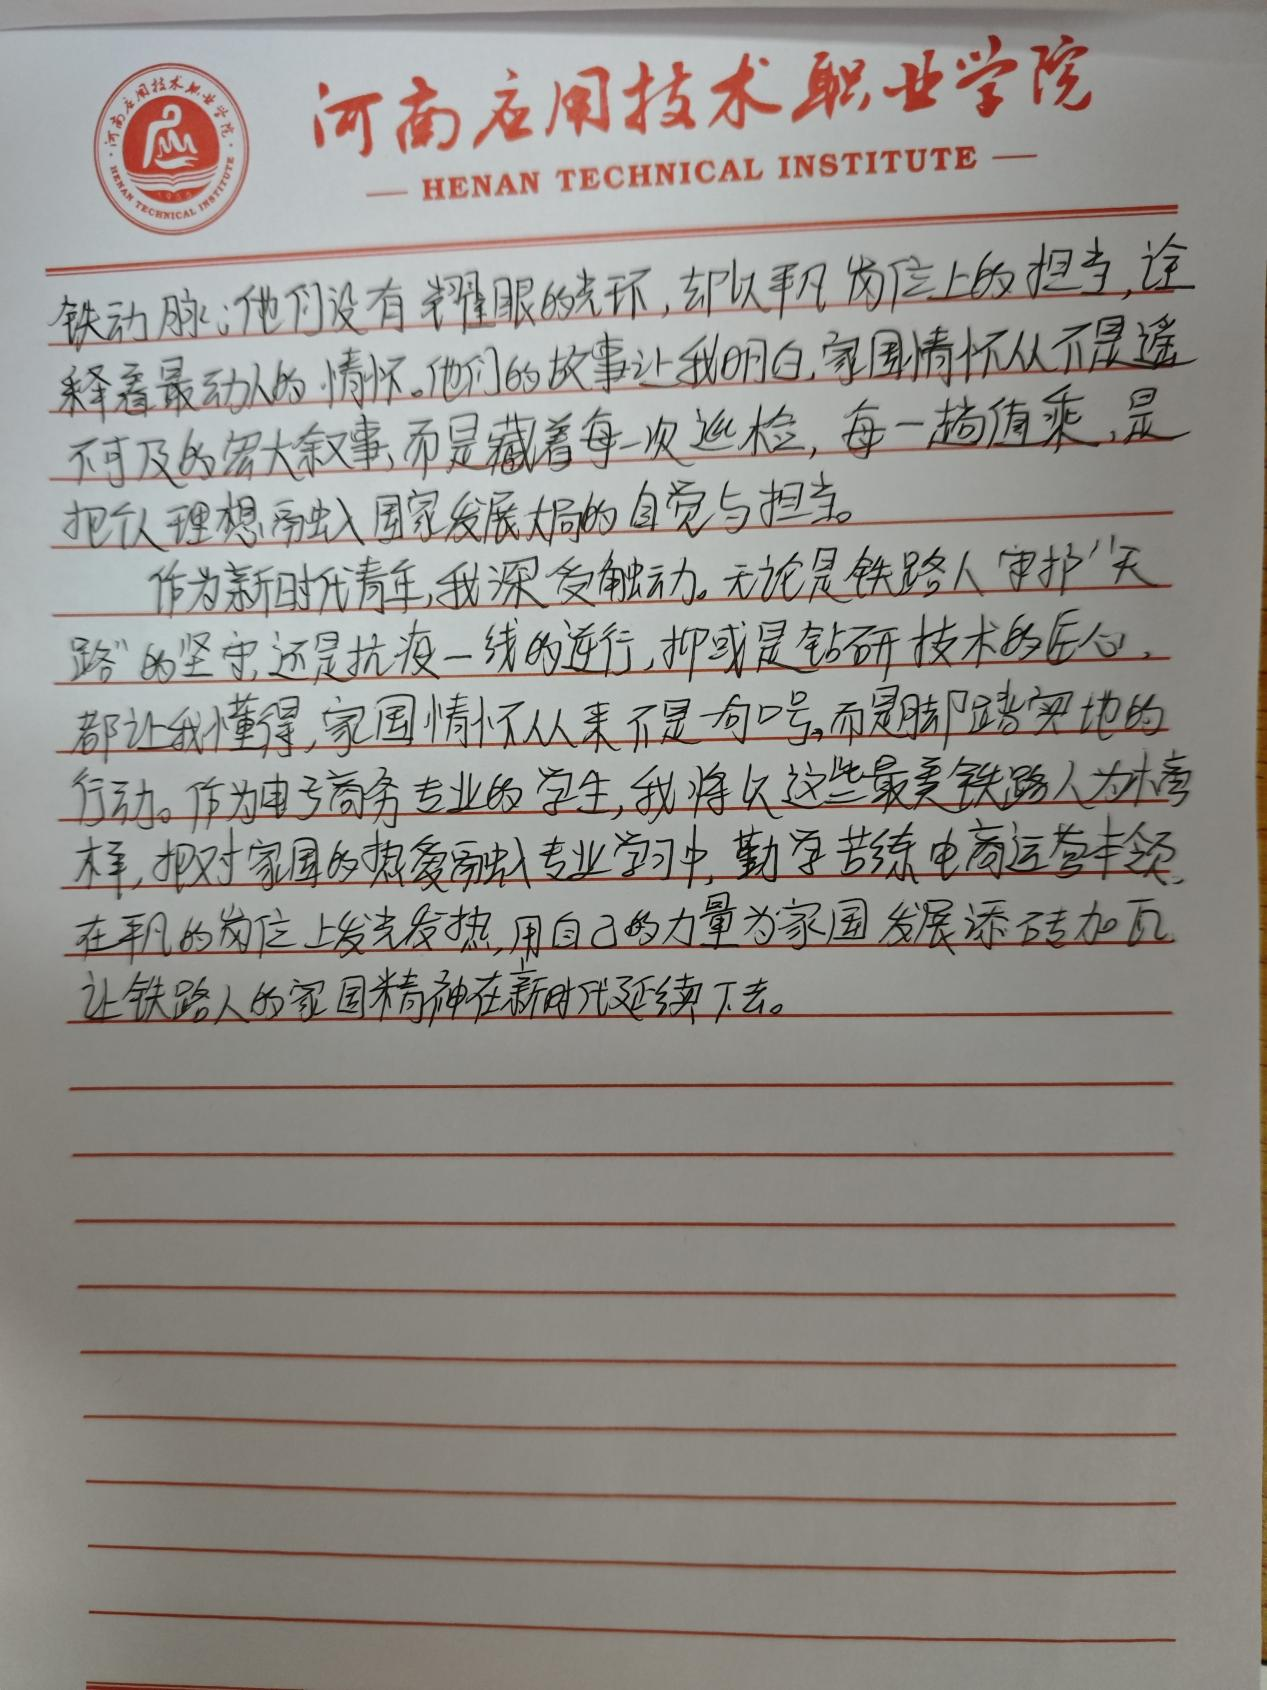 河南应用技术职业学院
HENAN TECHNICAL INSTITUTE
河南应用技术职业学院
HENAN TECHNICAL INSTITUTE
铁动脉；他们没有耀眼的光环，却以平凡岗位上的担当，诠
释着最动人的情怀。他们的故事让我明白，家国情怀从不是遥
不可及的宏大叙事，而是藏着每一次巡检，每一趟值乘，是
把个人理想融入国家发展大局的自觉与担当。
作为新时代青年，我深受触动。无论是铁路人守护“天
路”的坚守，还是抗疫一线的逆行，抑或是钻研技术的匠心，
都让我懂得，家国情怀从来不是一句口号，而是脚踏实地的
行动。作为电子商务专业的学生，我将以这些最美铁路人为榜
样，把对家国的热爱融入专业学习中，勤学苦练电商运营本领，
在平凡的岗位上发光发热，用自己的力量为家国发展添砖加瓦
让铁路人的家国精神在新时代延续下去。